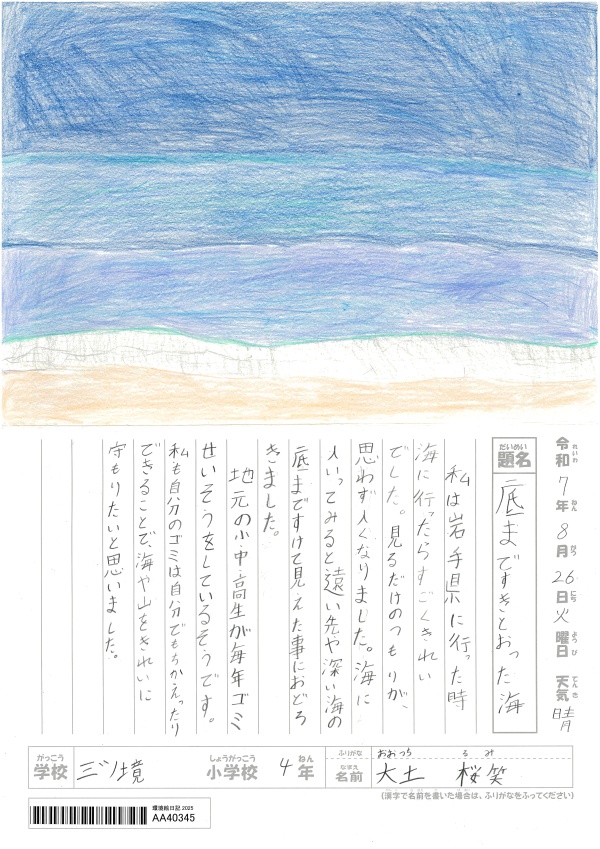 令和7年8月26日火曜日 天気 晴
れいわ ねん がつ にち ようび てんき
だいめい
題名 底まですきとおった海
私は岩手県に行った時
海に行ったらすごくきれい
でした。見るだけのつもりが、
思わず入くなりました。海に
入いってみると遠い先や深い海の
底まですけて見えた事におどろ
きました。
地元の小中高生が毎年ゴミ
せいそうをしているそうです。
私も自分のゴミは自分でもちかえったり
できることで、海や山をきれいに
守もりたいと思いました。
がっこう しょうがっこう ねん ふりがな おおつち るみ
学校 三ツ境 小学校 4年 なまえ 名前 大土 桜笑
(漢字で名前を書いた場合は、ふりがなをふってください)
環境絵日記 2025
AA40345